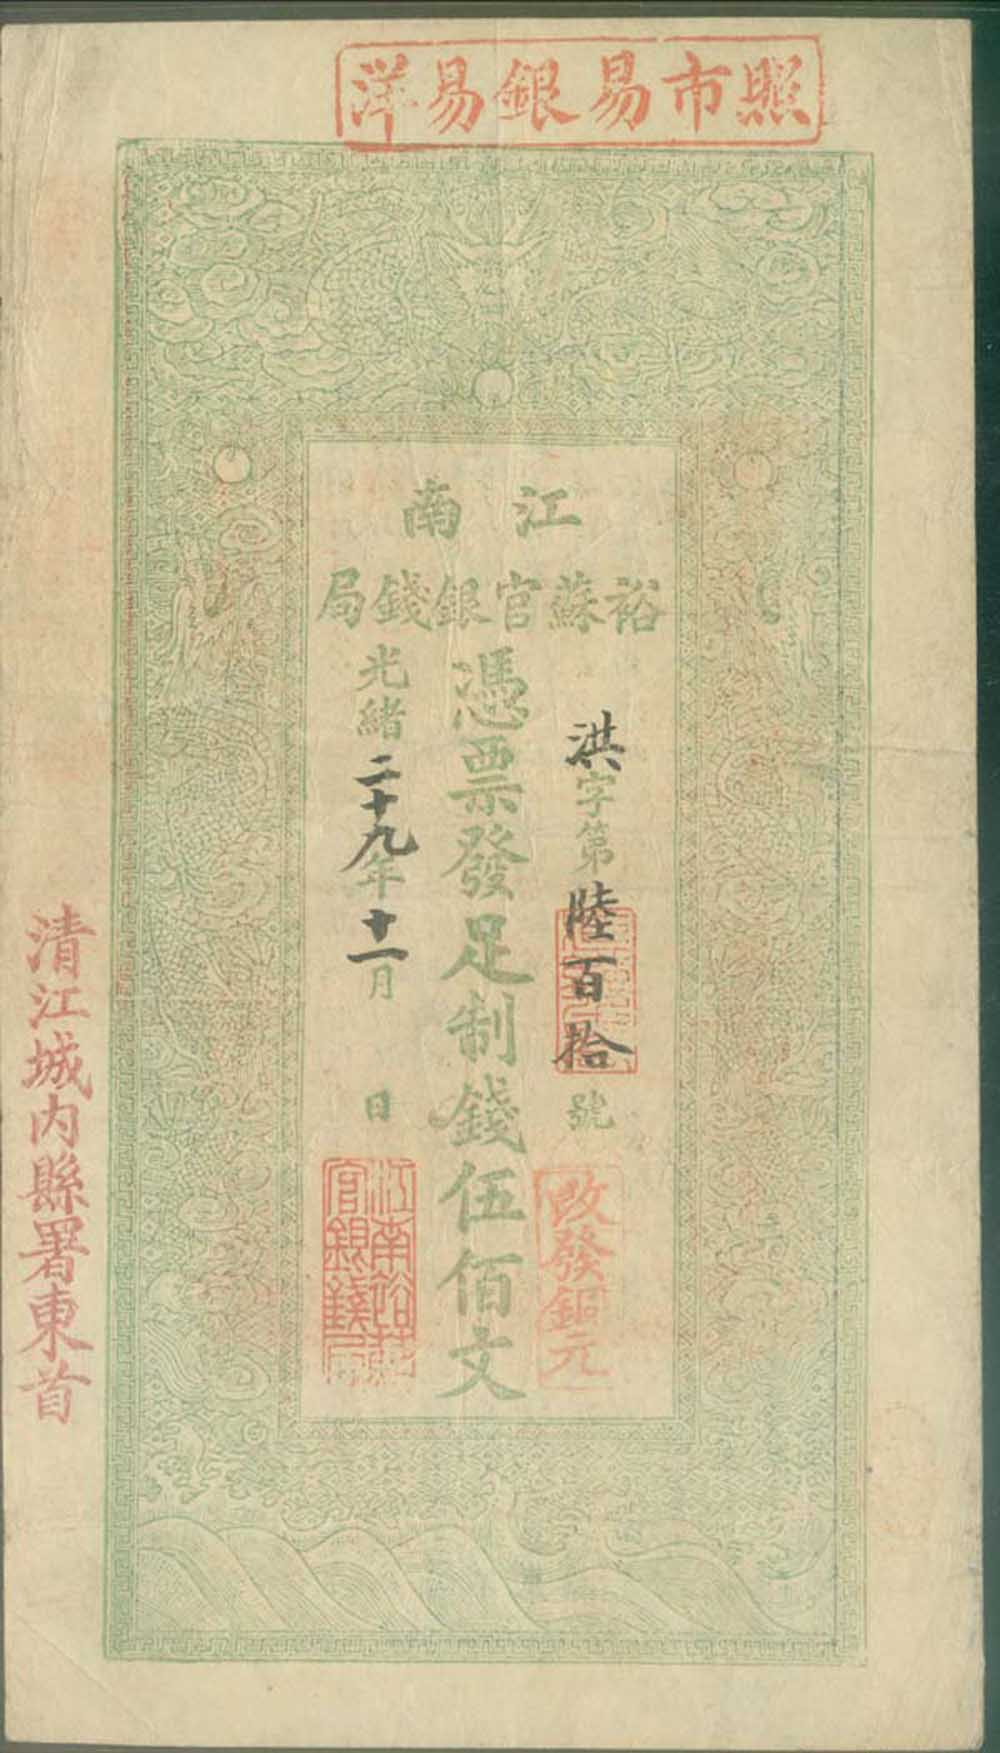 照市易銀易洋
江南
裕蘇官銀錢局
洪字第陸百拾號
憑票發足制錢伍佰文
光緒二十九年十一月 日
改發銅元
江南裕蘇官銀錢局
清江城內縣署東首